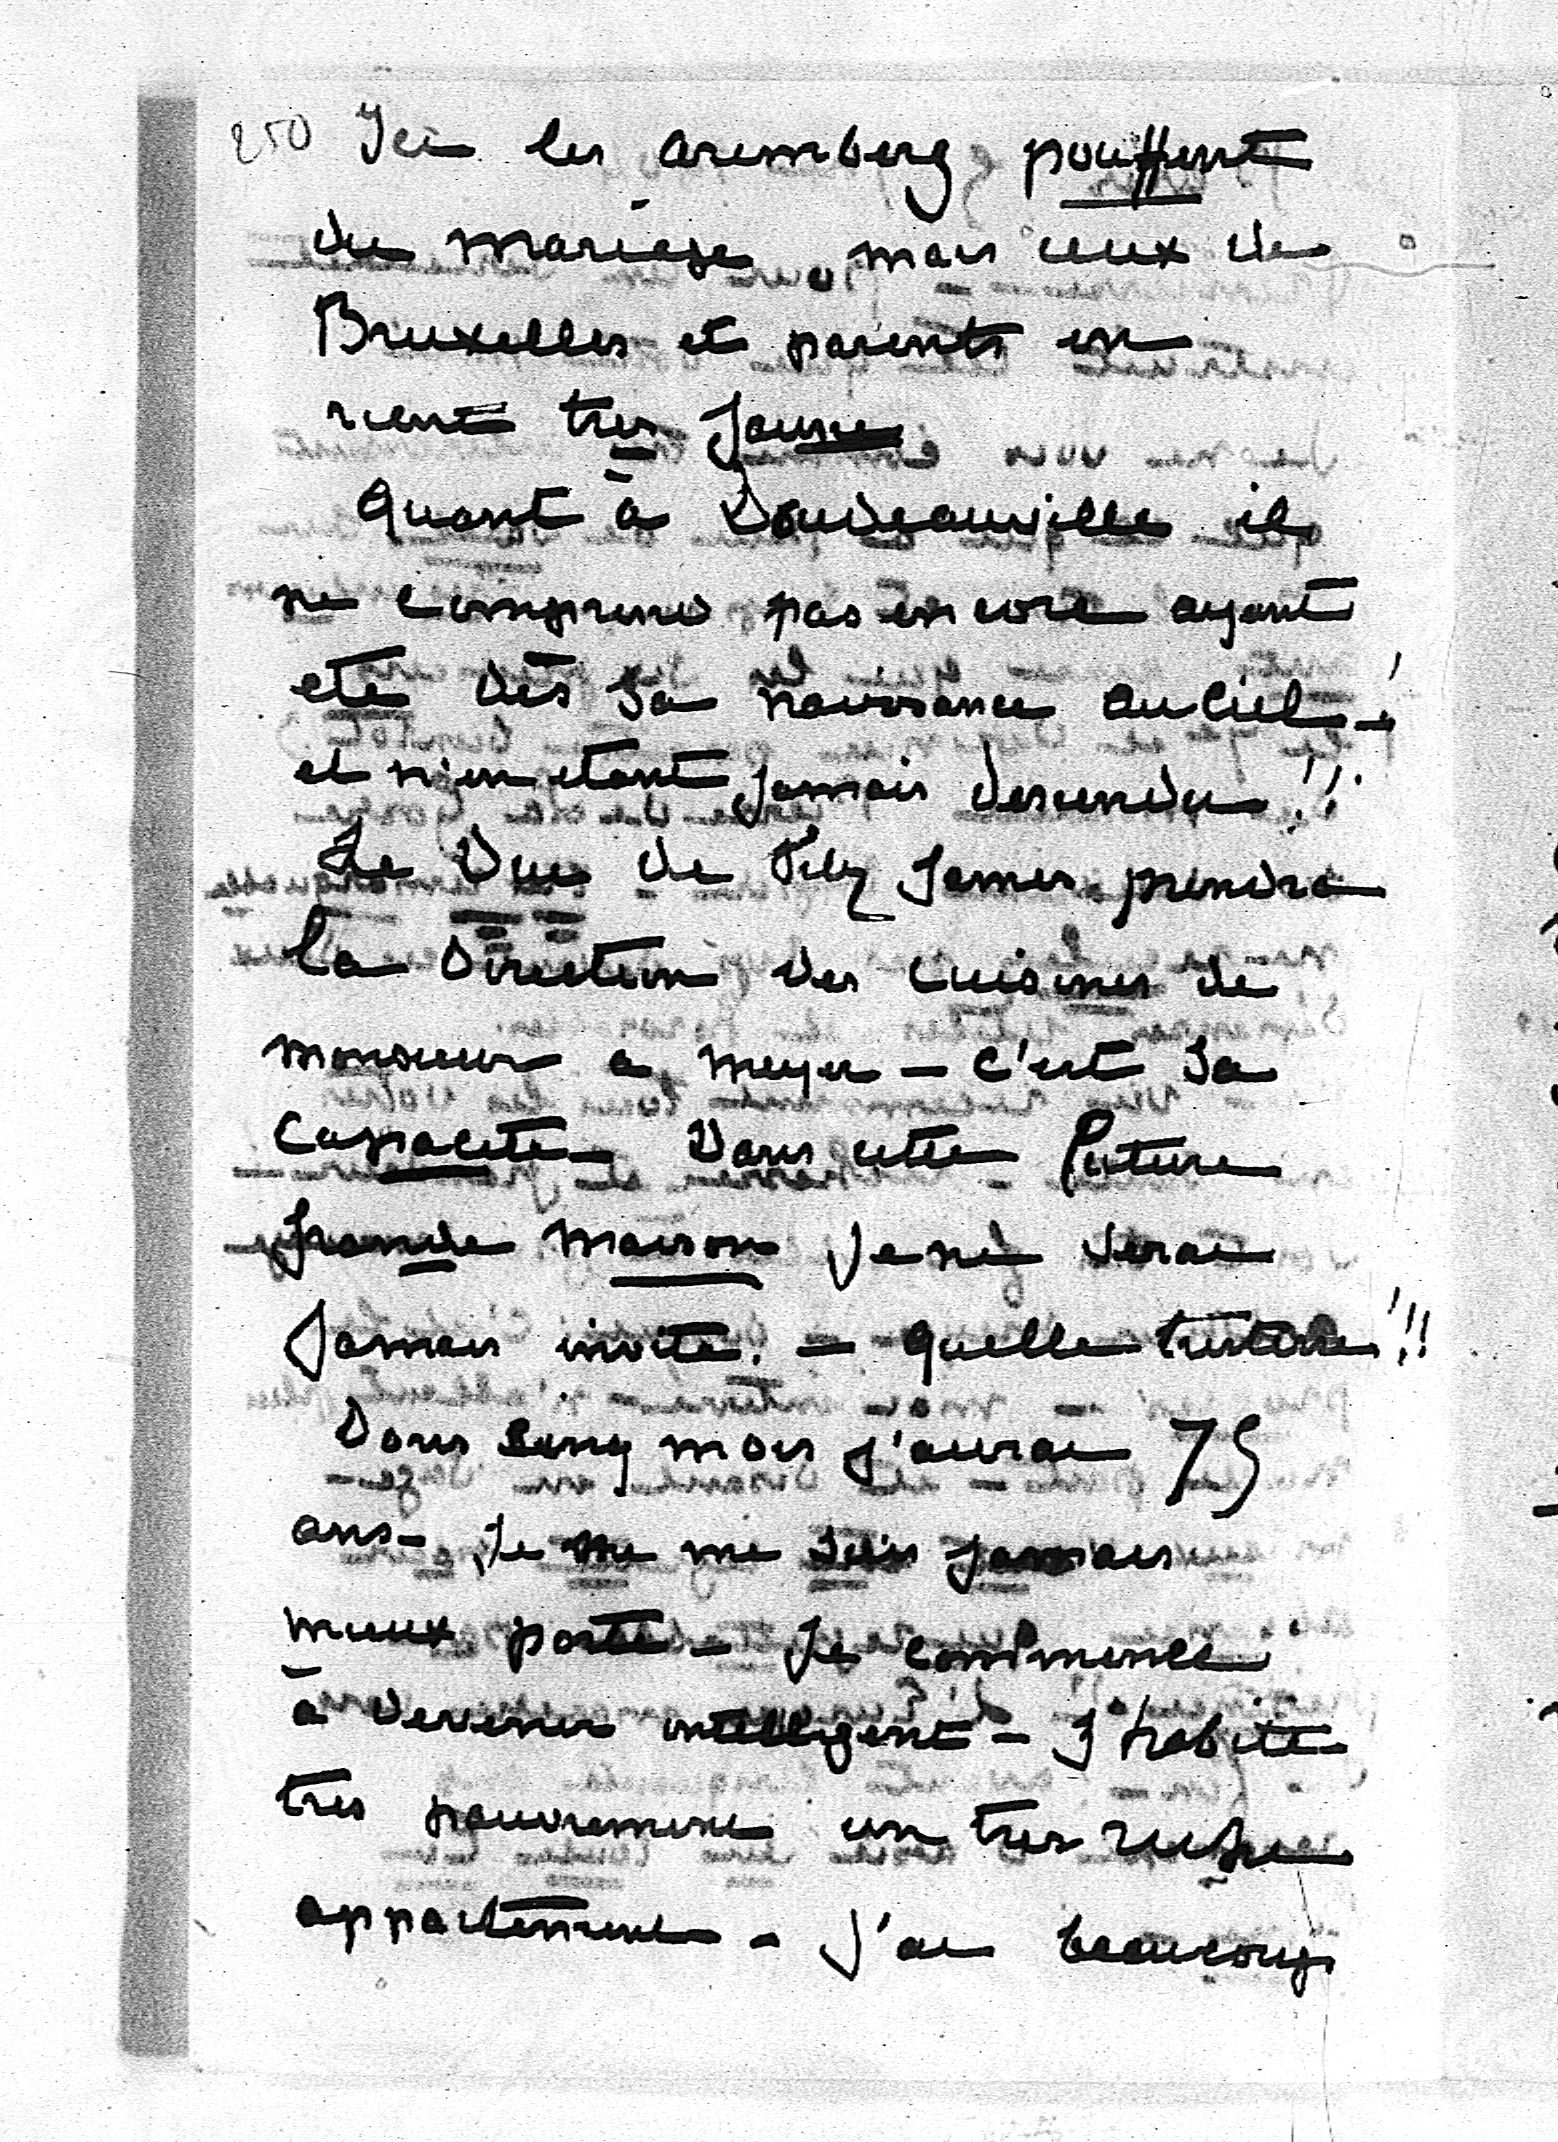 250 Ici les aremberg pouffent
du mariage, mais ceux de
Bruxelles et parents en
rient tres Jaune
Quant à Doudeauville il
ne comprend pas encore ayant
eté dès sa naissance au ciel - !
et n'en etant Jamais descendu !!
Le Duc de Fitz James prendra
la Direction des cuisines de
monsieur a meyer - C'est sa
Capacité - Dans cette future
grande maison Je ne serai
Jamais invité. - quelle tristesse !!!
Dans cinq mois J'aurai 75
ans - Je ne me suis jamais
mieux porté - Je commence
à devenir intelligent - J habite
tres pauvrement un tres riche
appartement - J'ai beaucoup